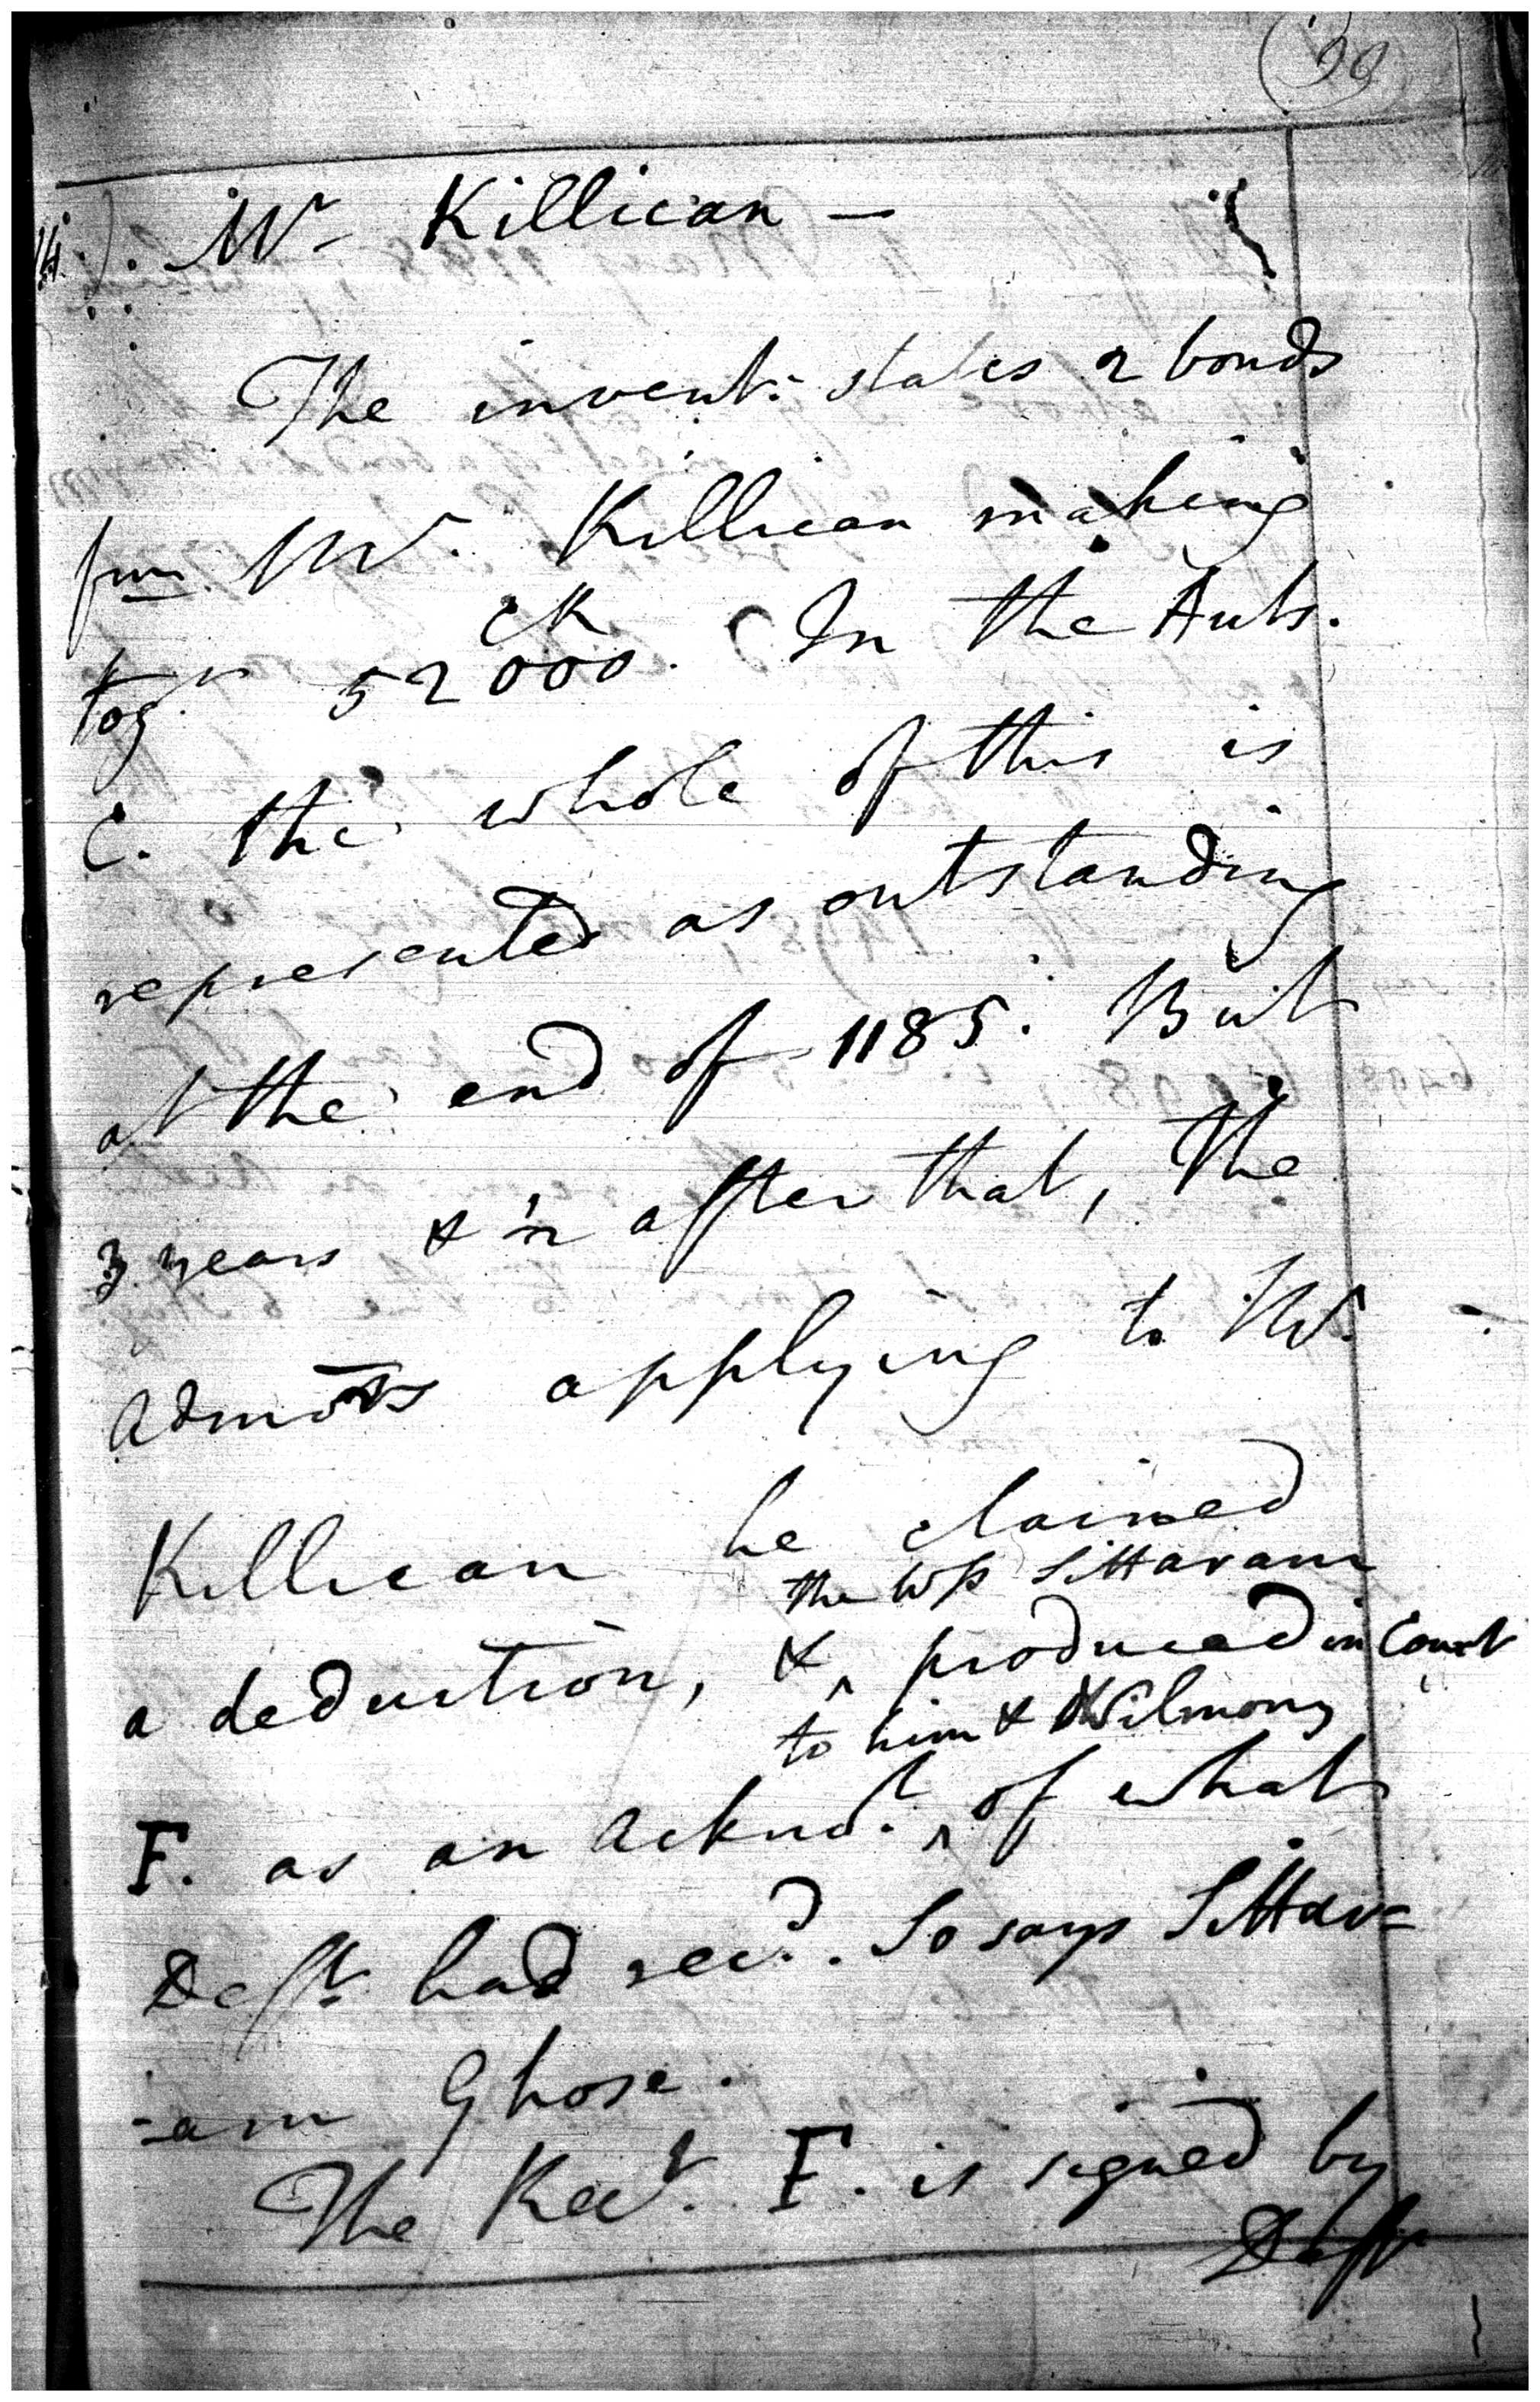 99
14. Mr Killican —
The invent: states 2 bonds
from Mr. Killican making
togr. 52000. In the Auts.
C. the whole of this is
represented as outstanding
at the end of 1185. But
3 years & ½ after that, the
admōrs applying to Mr.
Killican he claimed
the Wss Sittaram
a deduction, & ^ produced in Court
to him & Wilmony
F. as an acknd.t ^ of what
Deft. had recd. So says Sittar=
-am Ghose.
The Rect. F. is signed by
Deft